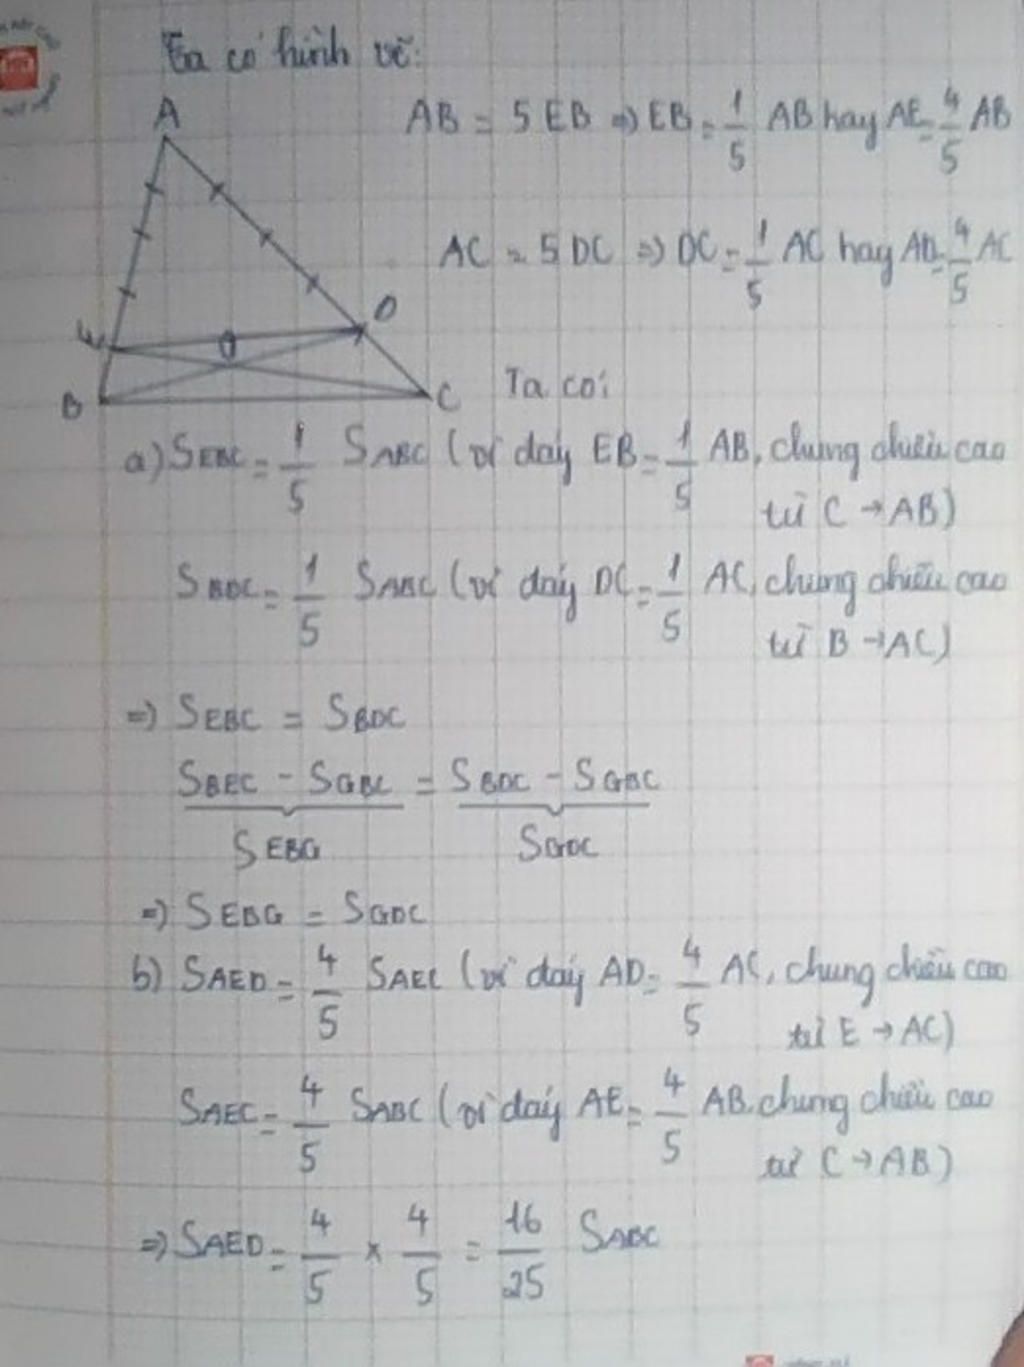 Ta có hình vẽ:
A
AB = 5 EB => EB = 1/5 AB hay AE = 4/5 AB
AC = 5 DC => DC = 1/5 AC hay AD = 4/5 AC
E
D
G
B
C
Ta có:
a) SEBC = 1/5 SABC (vì đáy EB = 1/5 AB, chung chiều cao
từ C → AB)
SBDC = 1/5 SABC (vì đáy DC = 1/5 AC, chung chiều cao
từ B → AC)
=> SEBC = SBDC
SBEC - SGBC = SBDC - SGBC
SEBG SGDC
=> SEBG = SGDC
b) SAED = 4/5 SAEC (vì đáy AD = 4/5 AC, chung chiều cao
từ E → AC)
SAEC = 4/5 SABC (vì đáy AE = 4/5 AB, chung chiều cao
từ C → AB)
=> SAED = 4/5 x 4/5 = 16/25 SABC